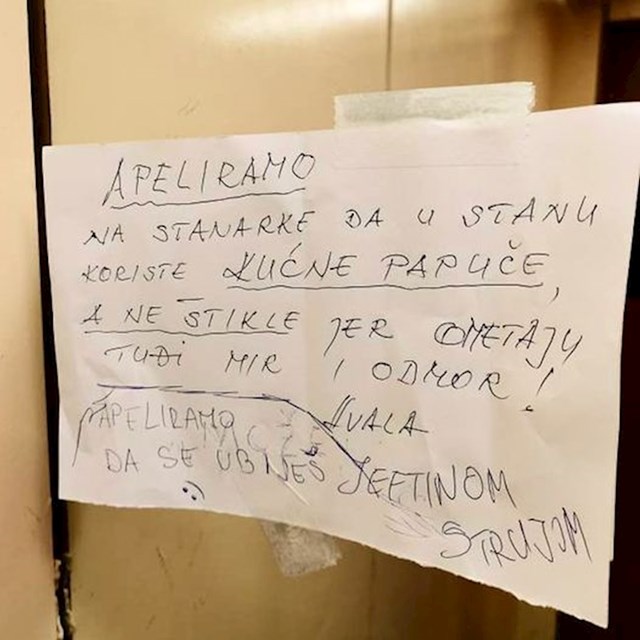 APELIRAMO
NA STANARKE DA U STANU
KORISTE KUĆNE PAPUČE,
A NE ŠTIKLE JER OMETAJU
TUĐI MIR I ODMOR!
HVALA
APELIRAMO
DA SE UBIJEŠ JEFTINOM
STRUJOM